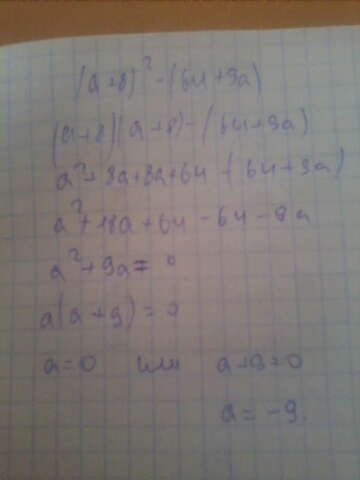 (a+8)² - (64+9a)
(a+8)(a+8) - (64+9a)
a²+8a+8a+64 - (64+9a)
a²+18a+64 - 64 - 9a
a²+9a = 0
a(a+9) = 0
a=0 или a+9=0
a = -9.